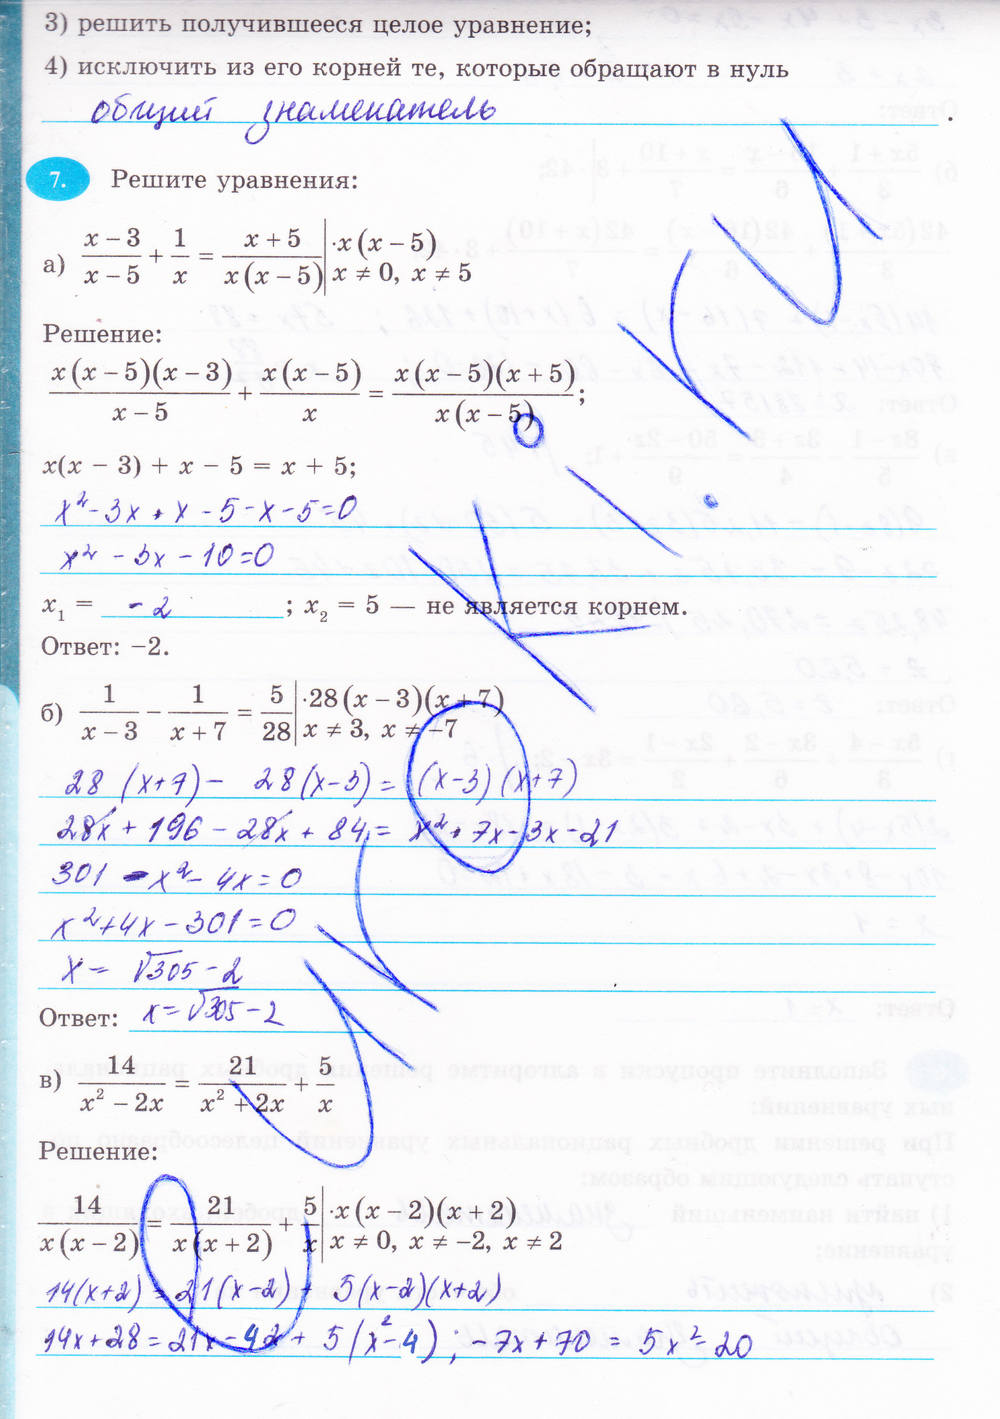 3) решить получившееся целое уравнение;
4) исключить из его корней те, которые обращают в нуль
общий знаменатель.
7. Решите уравнения:
а) (x − 3)/(x − 5) + 1/x = (x + 5)/(x(x − 5)) | ·x(x − 5)
x ≠ 0, x ≠ 5
Решение:
(x(x − 5)(x − 3))/(x − 5) + (x(x − 5))/x = (x(x − 5)(x + 5))/(x(x − 5));
x(x − 3) + x − 5 = x + 5;
x² - 3x + x - 5 - x - 5 = 0
x² - 3x - 10 = 0
x₁ = -2; x₂ = 5 — не является корнем.
Ответ: −2.
б) 1/(x − 3) − 1/(x + 7) = 5/28 | ·28(x − 3)(x + 7)
x ≠ 3, x ≠ −7
28(x+7) - 28(x-3) = (x-3)(x+7)
28x + 196 - 28x + 84 = x² + 7x - 3x - 21
301 - x² - 4x = 0
x² + 4x - 301 = 0
x = √305 - 2
Ответ: x = √305 - 2
в) 14/(x² − 2x) = 21/(x² + 2x) + 5/x
Решение:
14/(x(x − 2)) = 21/(x(x + 2)) + 5/x | ·x(x − 2)(x + 2)
x ≠ 0, x ≠ −2, x ≠ 2
14(x+2) = 21(x-2) + 5(x-2)(x+2)
14x + 28 = 21x - 42 + 5(x² - 4); -7x + 70 = 5x² - 20
УМ-КИ.КИ